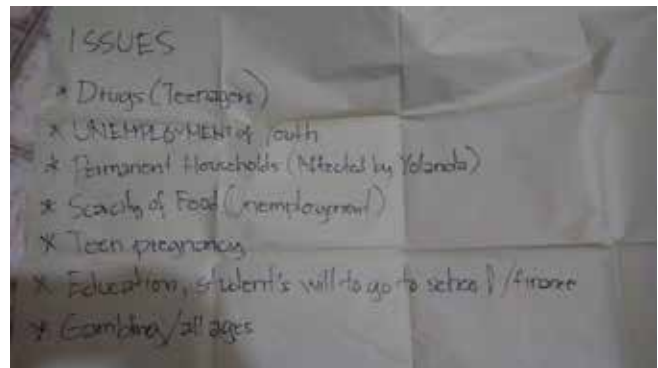 ISSUES
* Drugs (Teenagers)
* UNEMPLOYMENT of Youth
* Permanent Households (Affected by Yolanda)
* Scacity of Food (Unemployment)
* Teen pregnancy
* Education, student's will to go to school/finance
* Gambling/all ages